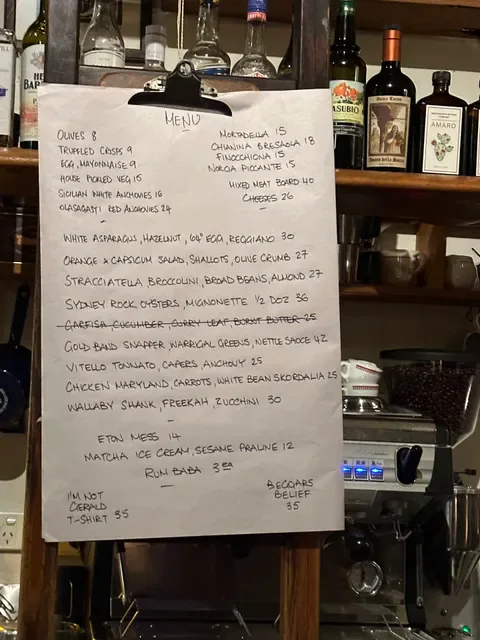 MENU
OLIVES 8
TRUFFLED CRISPS 9
EGG, MAYONNAISE 9
HOUSE PICKLED VEG 15
SICILIAN WHITE ANCHOVIES 16
OLASAGASTI RED ANCHOVIES 24
MORTADELLA 15
CHIANINA BRESAOLA 18
FINOCCHIONA 15
NORCIA PICCANTE 15
MIXED MEAT BOARD 40
CHEESES 26
WHITE ASPARAGUS, HAZELNUT, 64° EGG, REGGIANO 30
ORANGE & CAPSICUM SALAD, SHALLOTS, OLIVE CRUMB 27
STRACCIATELLA BROCCOLINI, BROAD BEANS, ALMOND 27
SYDNEY ROCK OYSTERS, MIGNONETTE 1/2 DOZ 36
GARFISH, CUCUMBER, CURRY LEAF, BURNT BUTTER 25
GOLD BAND SNAPPER WARRIGAL GREENS, NETTLE SAUCE 42
VITELLO TONNATO, CAPERS, ANCHOVY 25
CHICKEN MARYLAND, CARROTS, WHITE BEAN SKORDALIA 25
WALLABY SHANK, FREEKAH, ZUCCHINI 30
ETON MESS 14
MATCHA ICE CREAM, SESAME PRALINE 12
RUM BABA 3 EA
I'M NOT
GERALD
T-SHIRT 35
BEGGARS
BELIEF
35
AMARO